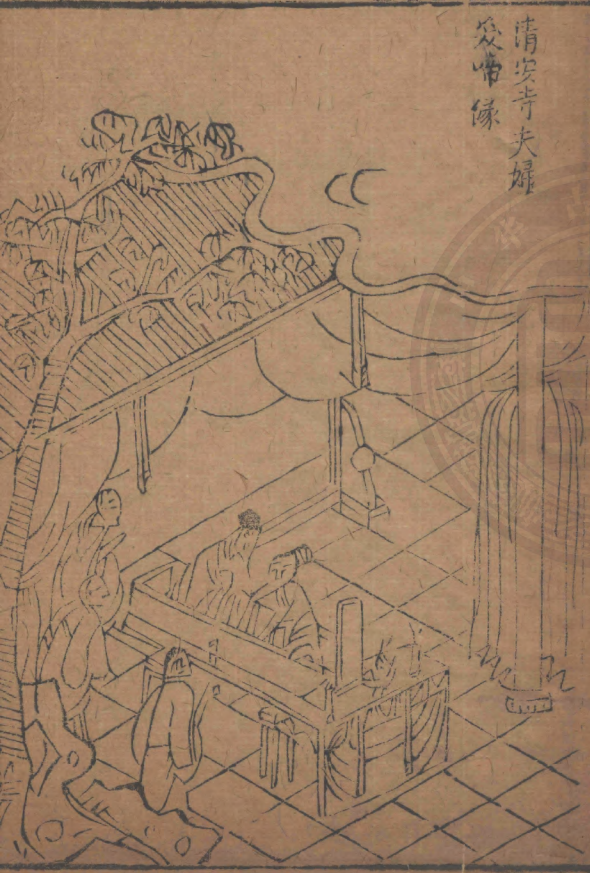 清安寺夫婦
笑啼緣